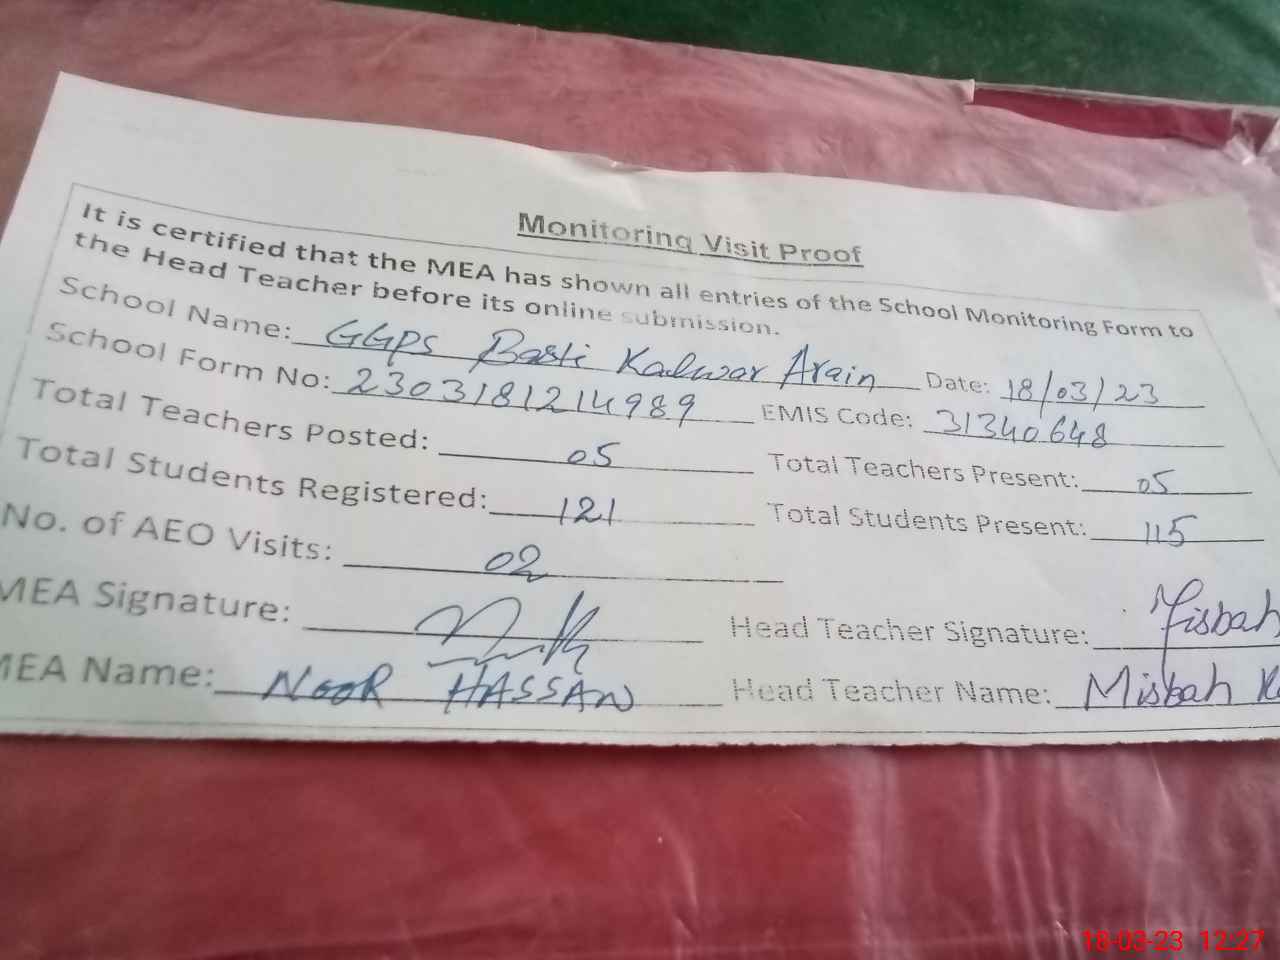 Monitoring Visit Proof
It is certified that the MEA has shown all entries of the School Monitoring Form to
the Head Teacher before its online submission.
School Name: GGPS Basti Kalwar Arain Date: 18/03/23
School Form No: 2303181214989 EMIS Code: 31340648
Total Teachers Posted: 05 Total Teachers Present: 05
Total Students Registered: 121 Total Students Present: 115
No. of AEO Visits: 02
MEA Signature: Head Teacher Signature: Misbah
MEA Name: NOOR HASSAN Head Teacher Name: Misbah
18-03-23 12:27